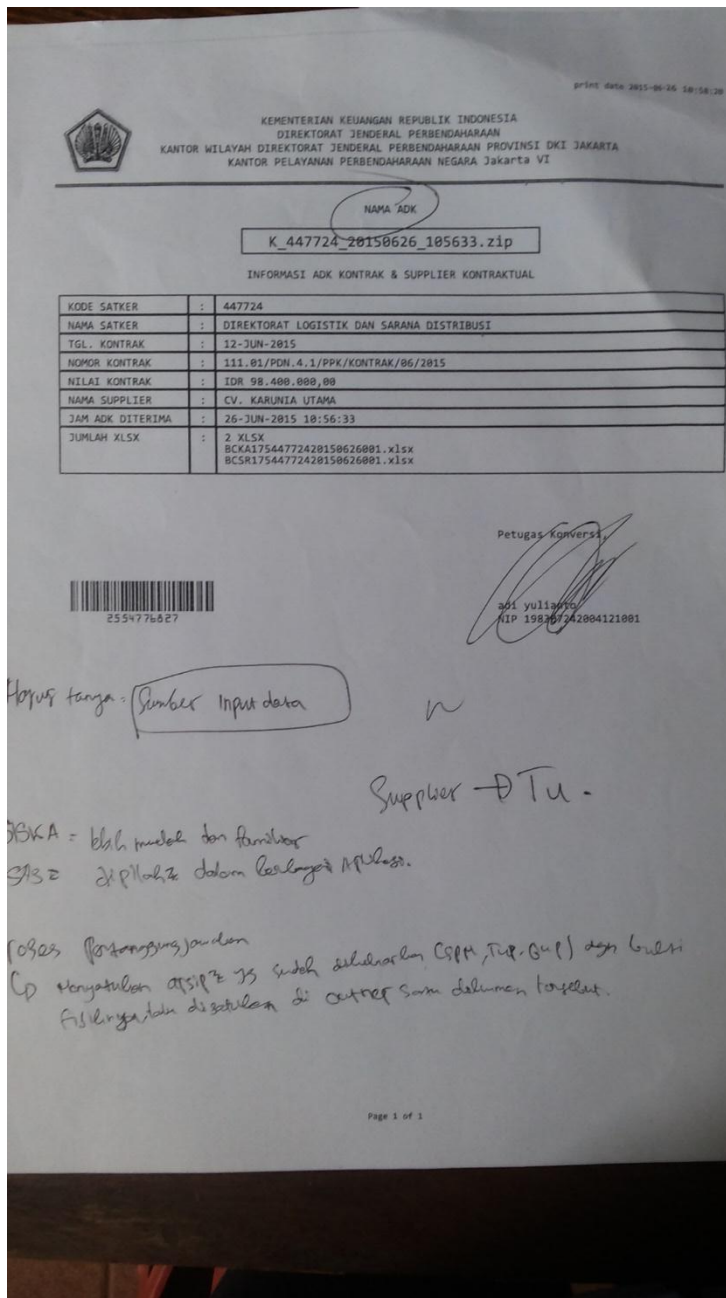 print date 2015-06-26 10:58:20
KEMENTERIAN KEUANGAN REPUBLIK INDONESIA
DIREKTORAT JENDERAL PERBENDAHARAAN
KANTOR WILAYAH DIREKTORAT JENDERAL PERBENDAHARAAN PROVINSI DKI JAKARTA
KANTOR PELAYANAN PERBENDAHARAAN NEGARA Jakarta VI
NAMA ADK
K_447724_20150626_105633.zip
INFORMASI ADK KONTRAK & SUPPLIER KONTRAKTUAL
KODE SATKER : 447724
NAMA SATKER : DIREKTORAT LOGISTIK DAN SARANA DISTRIBUSI
TGL. KONTRAK : 12-JUN-2015
NOMOR KONTRAK : 111.01/PDN.4.1/PPK/KONTRAK/06/2015
NILAI KONTRAK : IDR 98.400.000,00
NAMA SUPPLIER : CV. KARUNIA UTAMA
JAM ADK DITERIMA : 26-JUN-2015 10:56:33
JUMLAH XLSX : 2 XLSX
BCKA17544772420150626001.xlsx
BCSR17544772420150626001.xlsx
Petugas Konversi,
2554776827
adi yulianto
NIP 198207242004121001
Harus tanya: Sumber Input data
Supplier → TU.
= lebih mudah dan familiar
dipilah2 dalam berbagai Aplikasi.
Proses Pertanggungjawaban
Menyatukan arsip2 yg sudah dikeluarkan (SPM, TUP, GUP) dgn
fisiknya, lalu disatukan di satu dokumen tersebut.
Page 1 of 1